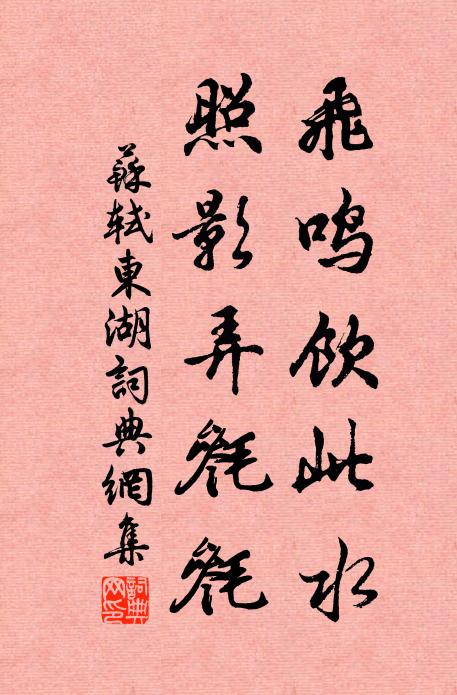 飛鳴飲此水
照影弄毿毿
蘇軾東湖詞典網集
詞典
网印